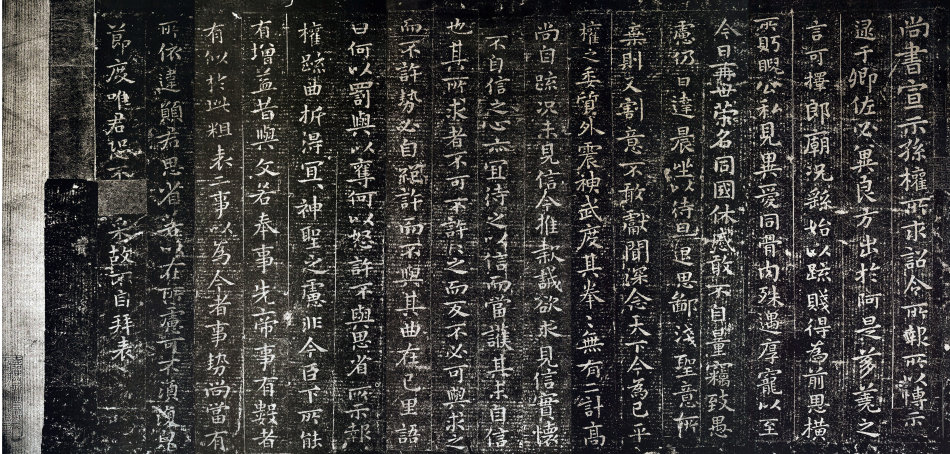 尚書宣示孫權所求詔令所報所以博示
逮于卿佐必冀良方出於阿是芻蕘之
言可擇郎廟況繇始以疏賤得為前恩橫
所盼睨公私見異愛同骨肉殊遇厚寵以至
今日再世榮名同國休慼敢不自量竊致愚
慮仍日達晨坐以待旦退思鄙淺聖意所
棄則又割意不敢獻聞深念天下今為已平
權之委質外震神武度其拳拳無有二計高
尚自疏況未見信今推款誠欲求見信實懷
不自信之心亦宜待之以信而當護其未自信
也其所求者不可不許許之而反不必可與求之
而不許勢必自絕許而不與其曲在己里語
曰何以罰與以奪何以怒許不與思省所示報
權疏曲折得宜宜神聖之慮非今臣下所能
有增益昔與文若奉事先帝事有數者
有似於此粗表二事以為今者事勢尚當有
所依違願君思省若以在所慮可不須復皃
節度唯君恐不
采故不自拜表